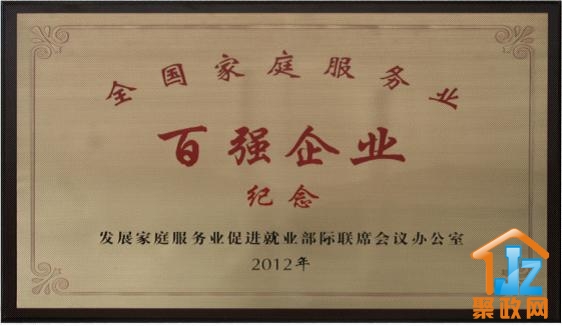 全国家庭服务业
百强企业
纪念
发展家庭服务业促进就业部际联席会议办公室
2012年
JZ
聚政网